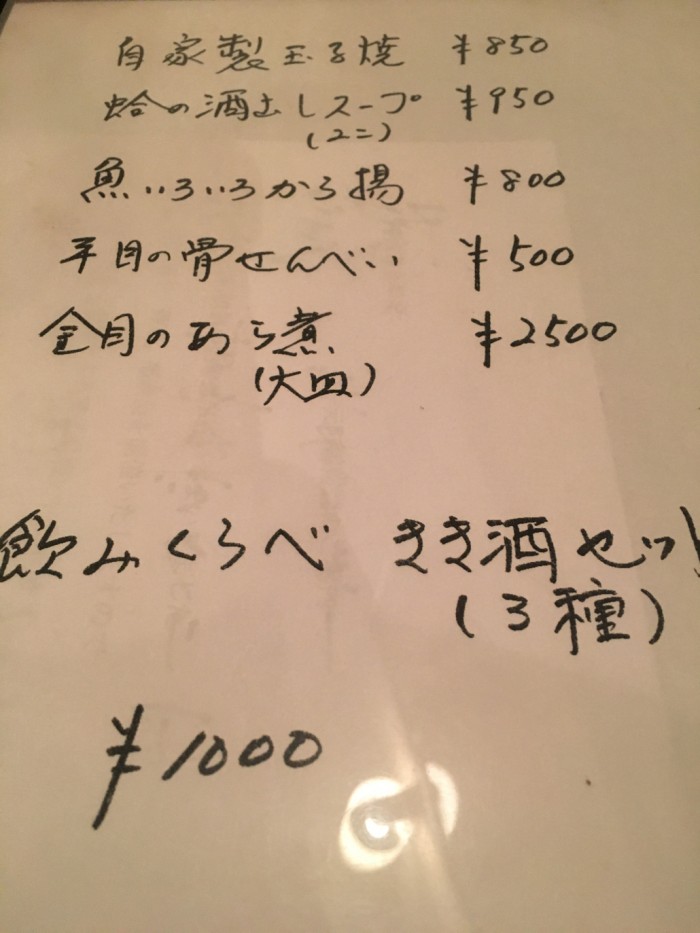 自家製玉子焼 ¥850
蛤の酒むしスープ ¥950
(ユニ)
魚いろいろから揚 ¥800
平目の骨せんべい ¥500
金目のあら煮 ¥2500
(大皿)
飲みくらべ きき酒セット
(3種)
¥1000